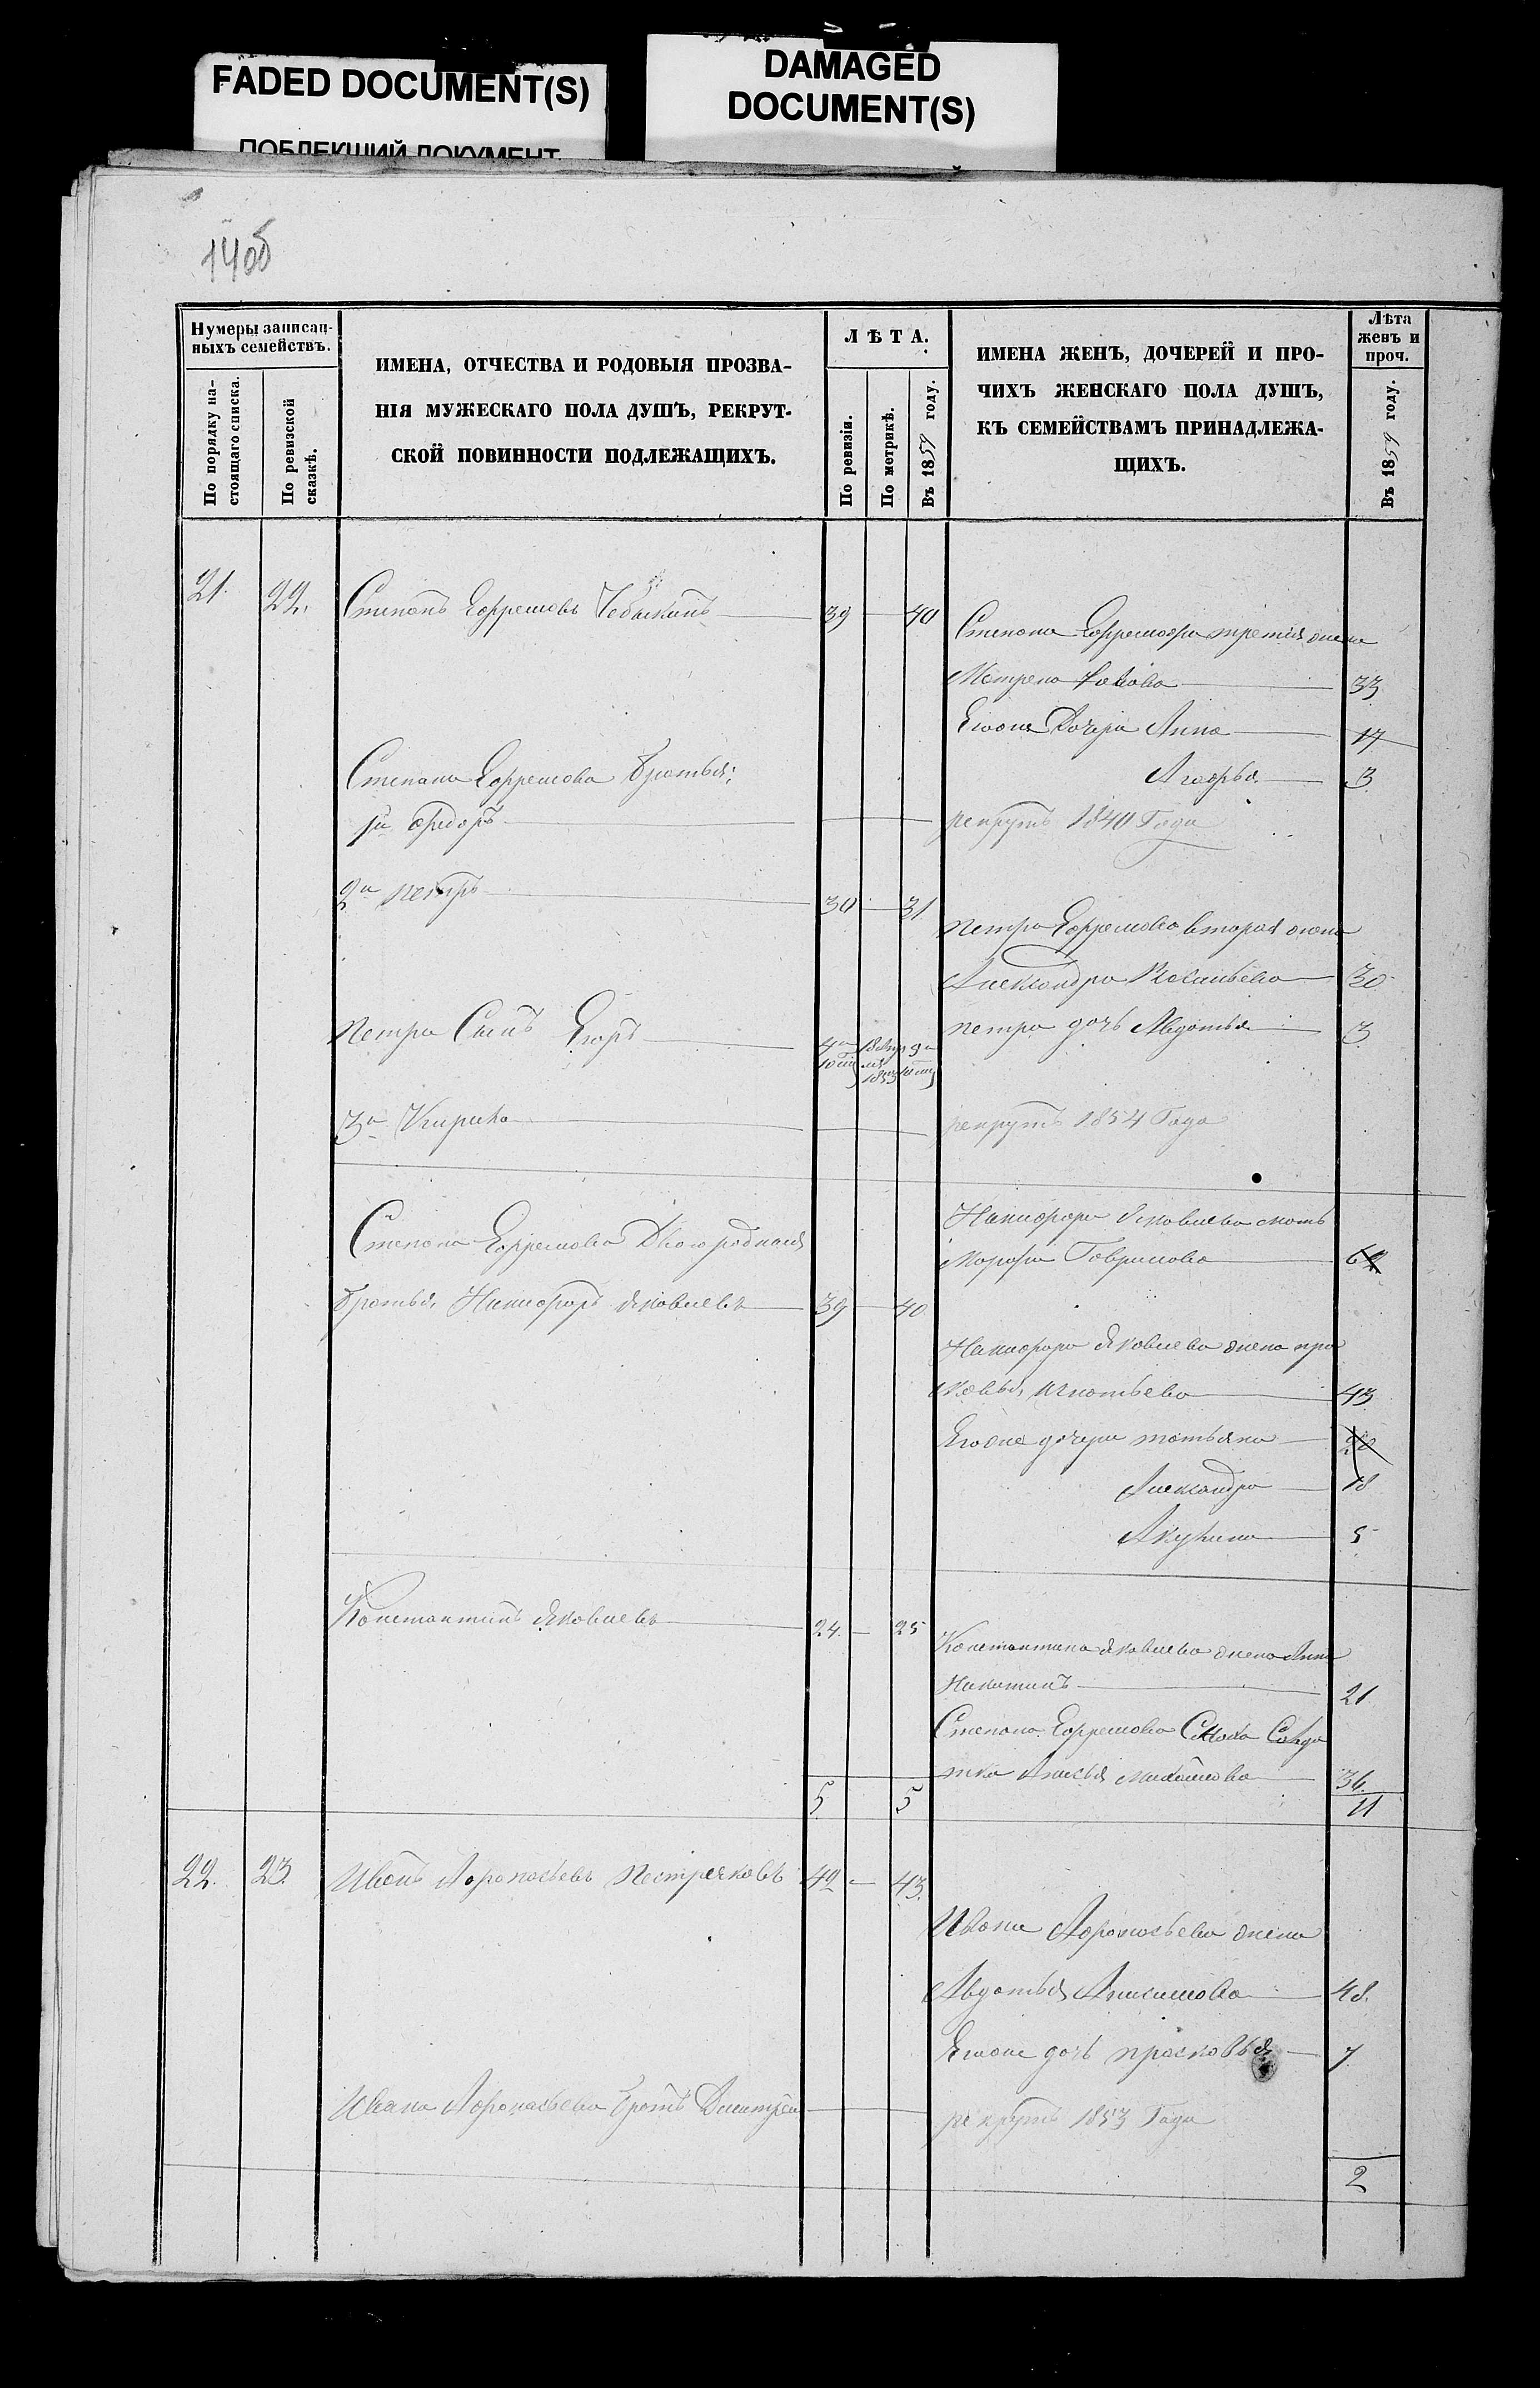 FADED DOCUMENT(S)
ПОБЛЕКШИЙ ДОКУМЕНТ
DAMAGED
DOCUMENT(S)
140об
Нумеры записан-
ныхъ семействъ.
По порядку на-
стоящаго списка.
По ревизской
сказкѣ.
ИМЕНА, ОТЧЕСТВА И РОДОВЫЯ ПРОЗВА-
НІЯ МУЖЕСКАГО ПОЛА ДУШЪ, РЕКРУТ-
СКОЙ ПОВИННОСТИ ПОДЛЕЖАЩИХЪ.
ЛѢТА.
По ревизіи.
По метрикѣ.
Въ 1859 году.
ИМЕНА ЖЕНЪ, ДОЧЕРЕЙ И ПРО-
ЧИХЪ ЖЕНСКАГО ПОЛА ДУШЪ,
КЪ СЕМЕЙСТВАМЪ ПРИНАДЛЕЖА-
ЩИХЪ.
Лѣта
женъ и
проч.
Въ 1859 году.
21. 22. Степанъ Ефремовъ 39 40
Степана Ефремова третья жена
Матрена 33
Егоже Дочери Анна 17
Агафья 3
Степана Ефремова братья:
1й Федоръ рекрутъ 1840 Года
2й петръ 30 31
петра Ефремова вторая жена
Александра Васильева 30
петра Сынъ Егоръ
петра дочь Авдотья 3
3й Кирила рекрутъ 1854 Года
Степана Ефремова Двоюродныя
братья, Никифоръ Яковлевъ 39 40
Никифора Яковлева мать
Марфа Гаврилова
Никифора Яковлева жена пра
сковья игнатьева 43
Егоже дочери татьяна 20
Александра 18
Акулина 5
Константинъ Яковлевъ 24 25
Константина Яковлева жена Анна
Никитина 21
Степана Ефремова Сноха Солда
тка Анисья михайлова 36
5 5 11
22. 23. Иванъ Афонасьевъ Пестряковъ 42 43
Ивана Афонасьева жена
Авдотья Анисимова 48
Егоже дочь прасковья 7
Ивана Афонасьева братъ Дмитрей рекрутъ 1853 Года
2